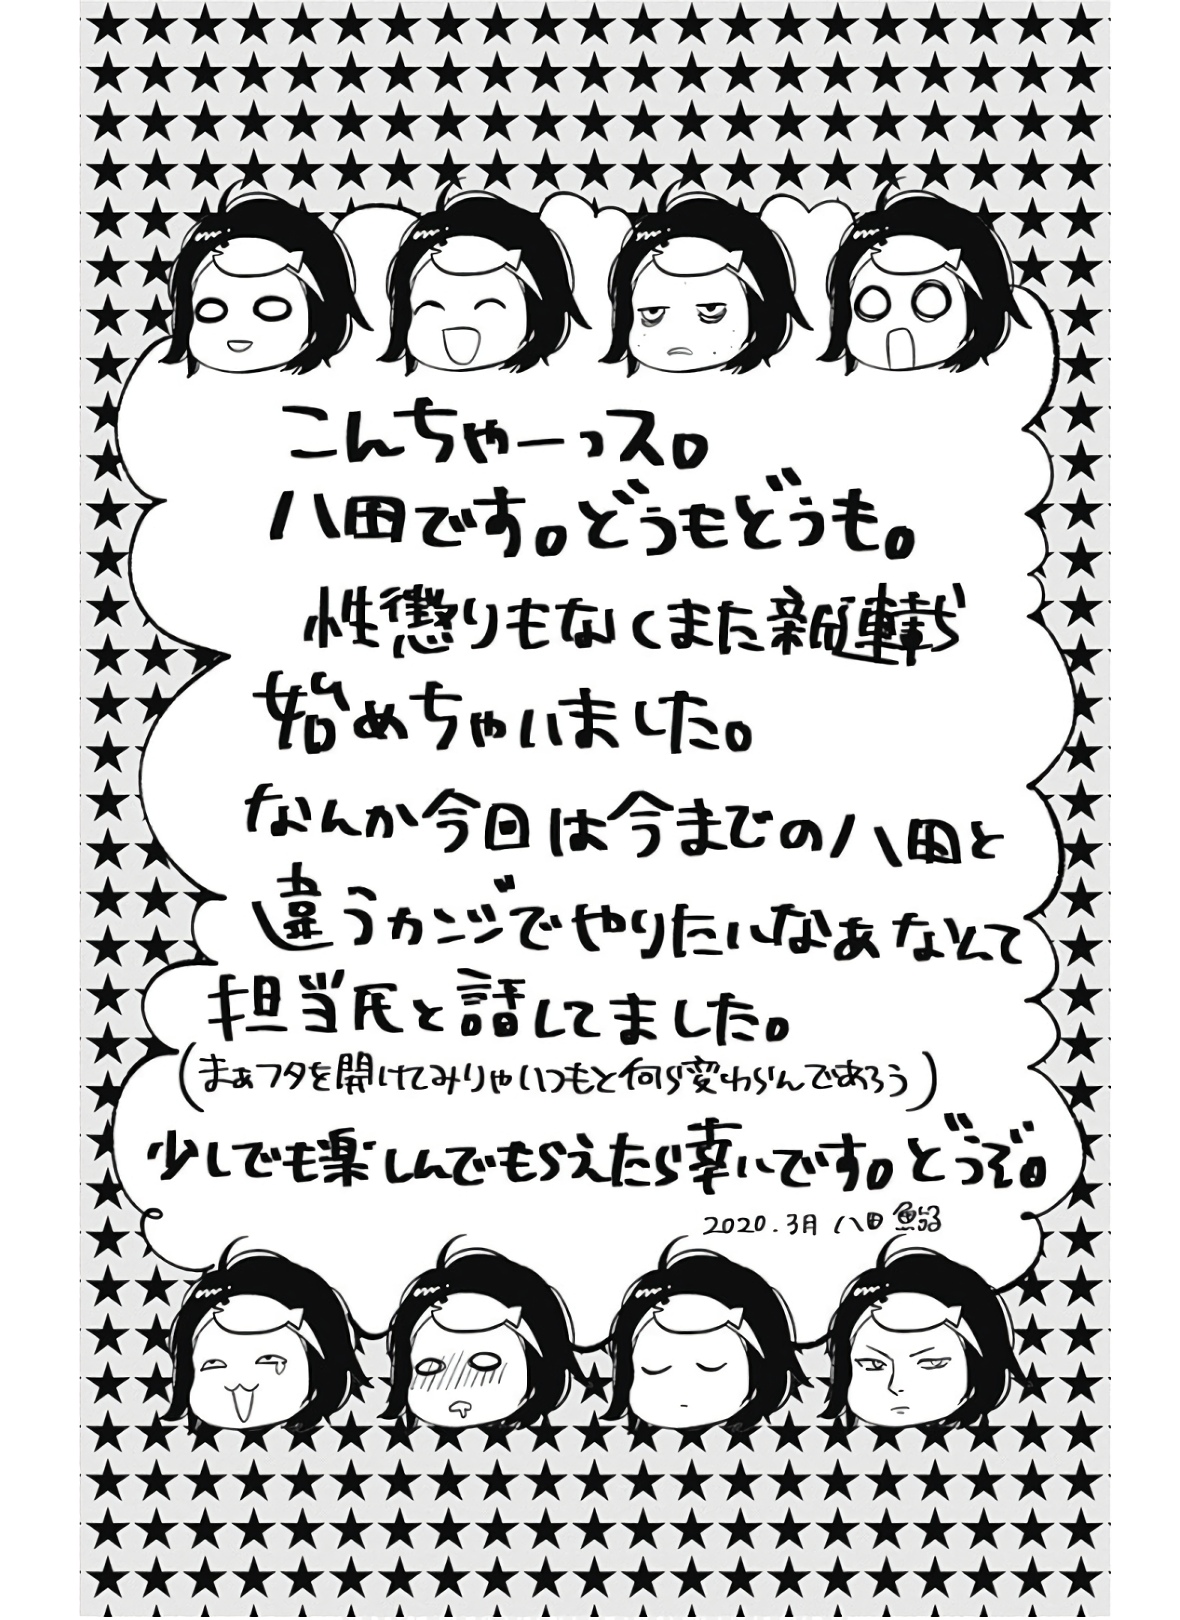 こんちゃーっス。
八田です。どうもどうも。
性懲りもなくまた新連載
始めちゃいました。
なんか今日は今までの八田と
違うカンジでやりたいなぁなんて
担当氏と話してました。
(まぁフタを開けてみりゃいつもと何ら変わらんであろう)
少しでも楽しんでもらえたら幸いです。どうぞ。
2020.3月 八田鮎子